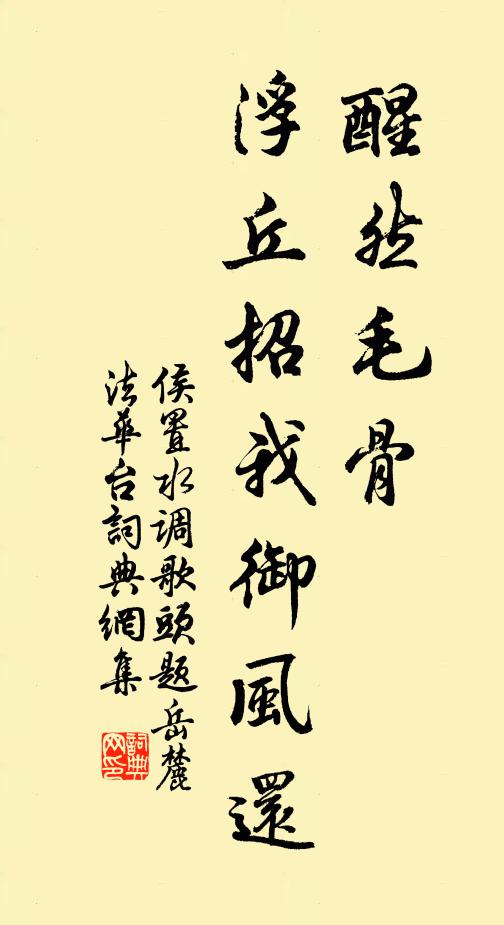 醒然毛骨
浮丘招我御風還
侯置水调歌頭题岳麓
法華台詞典網集
詞典网印